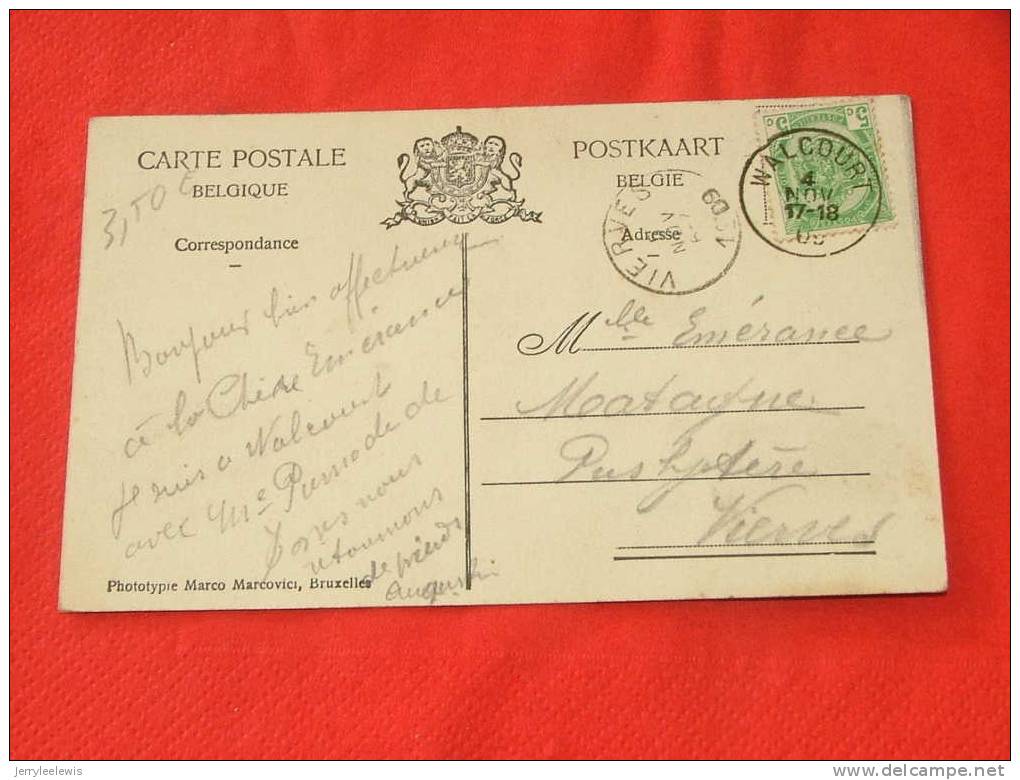 CARTE POSTALE
BELGIQUE
POSTKAART
BELGIE
3,50 €
Correspondance
Adresse
L'UNION FAIT LA FORCE
5 c 5 c
WALCOURT
4
NOV.
17-18
09
VIERVES
NOV
09
Bonjour bien affectueux
à la Chère Emérance
Je suis a Walcourt
avec Me
de
nous
retournons
de
Mlle Emérance
Matagne
Vierves
Phototypie Marco Marcovici, Bruxelles
jerryleelewis
delcampe.net